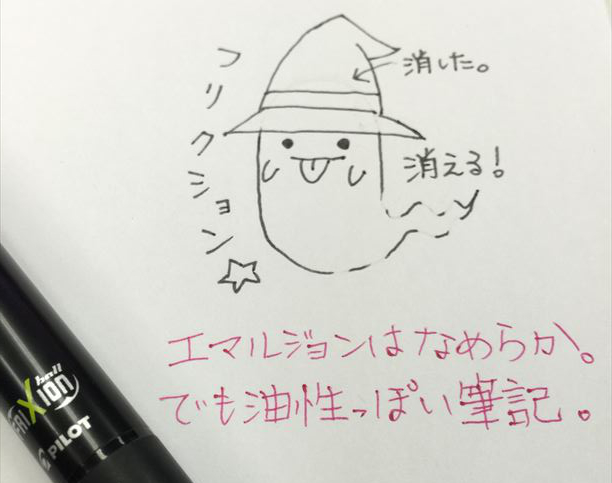 フリクション☆
消した。
消える!
エマルジョンはなめらか。
でも油性っぽい筆記。
FRIXION ball
PILOT